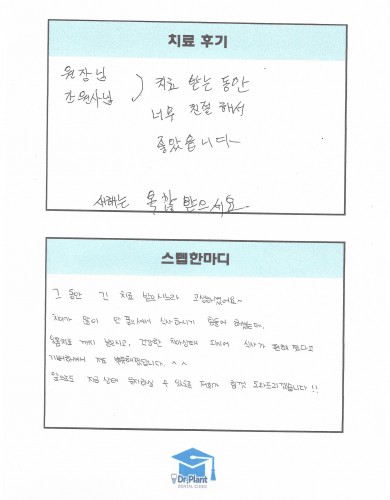 치료 후기
원장님
간호사님 ) 치료 받는 동안
너무 친절해서
좋았습니다
새해는 복 많이 받으세요
스텝한마디
그 동안 긴 치료 받으시느라 고생하셨어요~
치아가 많이 안 좋으셔서 식사하시기 힘들어 하셨는데,
잇몸치료 까지 받으시고, 건강한 치아상태 되셔서 식사가 편해 졌다고
기뻐하셔서 저도 뿌듯해졌답니다. ^^
앞으로도 지금 상태 유지하실 수 있도록 저희가 힘껏 도와드리겠습니다!!
Dr.Plant